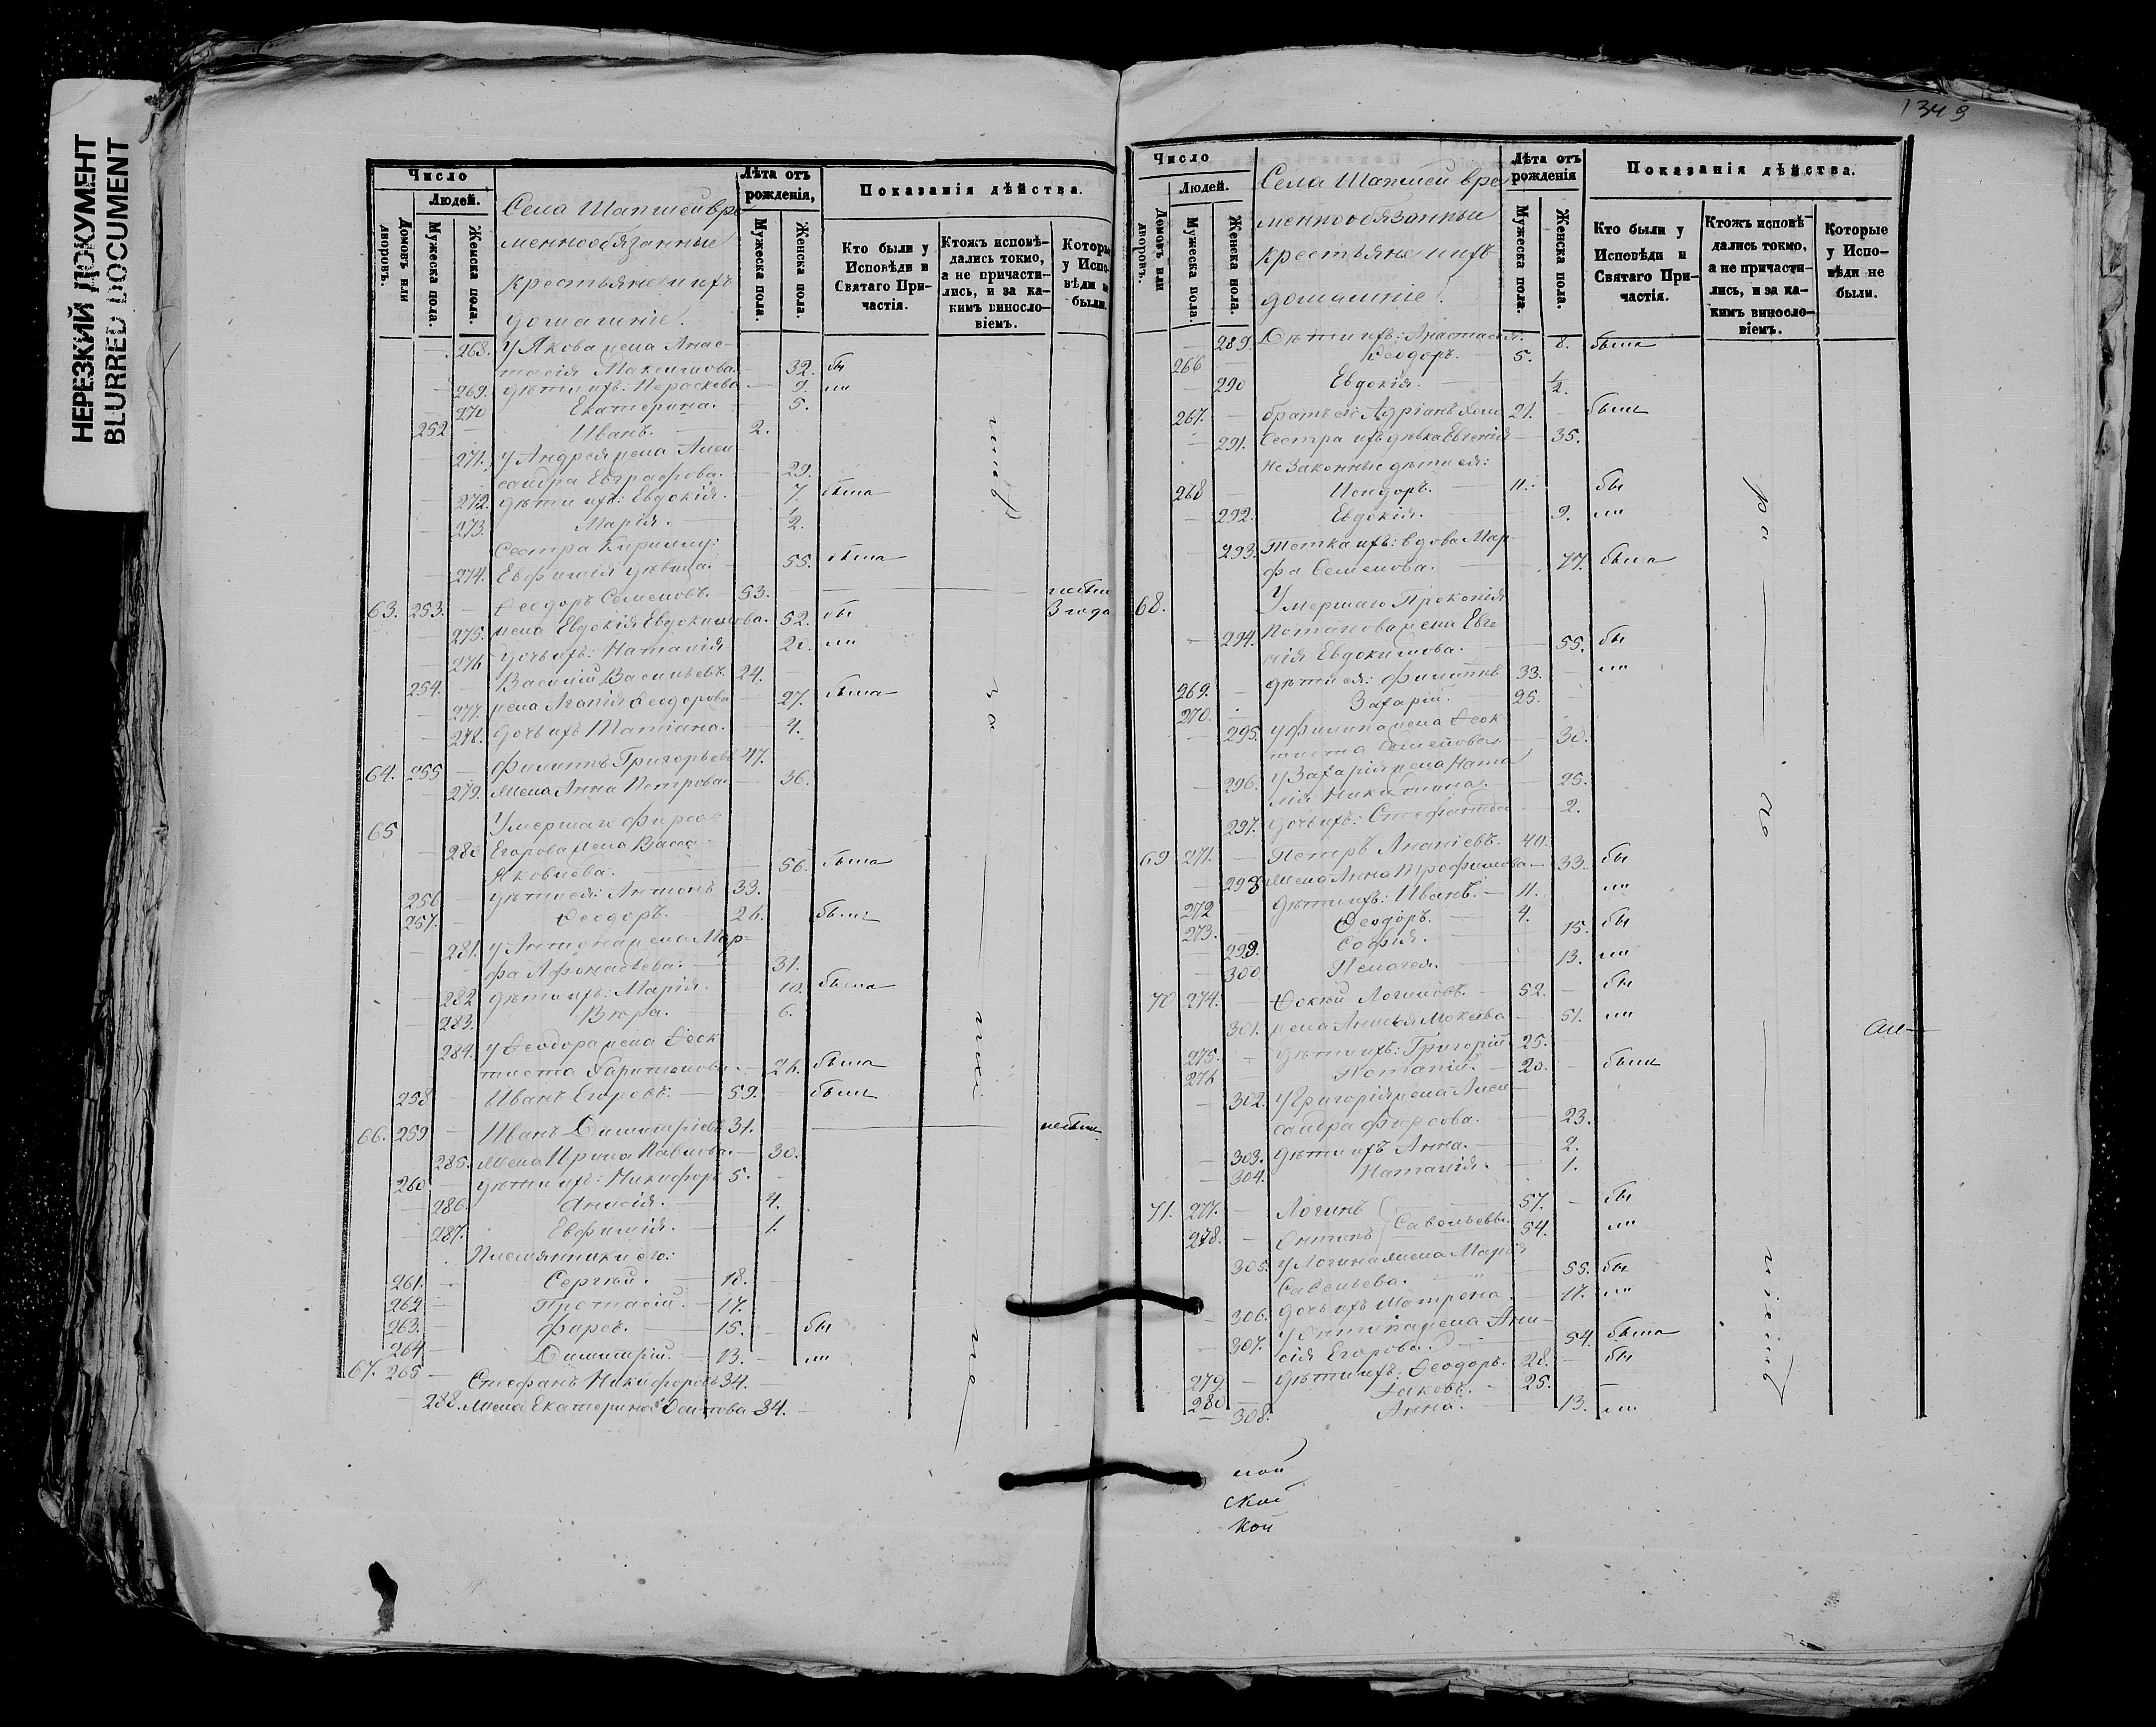 НЕРЕЗКИЙ ДОКУМЕНТ
BLURRED DOCUMENT
Число
Людей.
Домовъ или дворовъ.
Мужеска пола.
Женска пола.
Села Шапшей вре
меннообязанные
крестьяне и ихъ
домашніе.
Лѣта отъ рожденія,
Мужеска пола.
Женска пола.
Показанія дѣйства.
Кто были у Исповѣди и Святаго При-частія.
Ктожъ исповѣ-дались токмо, а не причасти-лись, и за ка-кимъ винослo-віемъ.
Которые у Испо-вѣди не были.
268. У Якова жена Анас-
тасія Максимова. 32. бы
269. дѣти ихъ: Параскева 9. ли
270 Екатерина. 5.
252 Иванъ. 2.
271. У Андрея жена Алек
сандра Евграфова. 29.
272. дѣти ихъ: Евдокія. 7. была
273. Марія. 1/2.
Сестра Кириллу:
274. Евфимія дѣвица. 55. была
63. 253. Ѳеодоръ Семеновъ. 53. небылъ 3 года
275. жена Евдокія Евдокимова. 52. бы
276 дочь ихъ: Наталія 20. ли
254. Василій Васильевъ. 24.
277. жена Агафія Ѳеодорова 27. была
278. дочь ихъ Татіана. 4.
64. 255 Филиппъ Григорьевъ 47.
279. Жена Анна Петрова. 36.
65 Умершаго Фирса
280 Егорова жена Васса
Яковлева. 56. была
256 дѣти ея: Антонъ 33.
257. Ѳеодоръ. 26. былъ
281. У Антона жена Мар-
фа Афонасьева. 31.
282 дѣти ихъ: Марія. 10. была
283. Вѣра. 6.
284. У Ѳеодора жена Ѳеок
тиста Харитонова. 26. была
258 Иванъ Егоровъ. 59. былъ
66. 259 Иванъ Димитріевъ 31. небылъ
285. Жена Ирина Павлова. 30.
260 дѣти ихъ: Никифоръ 5.
286. Анисія. 4.
287. Евфимія. 1.
Племянники его:
261. Сергѣй. 18.
262 Протасій. 17.
263. Фирсъ. 15. бы
264 Димитрій. 13. ли
67. 265 Стефанъ Никифоровъ 34.
288. Жена Екатерина Осипова 34.
1343
Число
Людей.
Домовъ или дворовъ.
Мужеска пола.
Женска пола.
Села Шапшей вре
меннообязанные
крестьяне и ихъ
домашніе.
Лѣта отъ рожденія
Мужеска пола.
Женска пола.
Показанія дѣйства.
Кто были у Исповѣди и Святаго При-частія.
Ктожъ исповѣ-дались токмо, а не причасти-лись, и за ка-кимъ винослo-віемъ.
Которые у Испо-вѣди не были.
289. Дѣти ихъ: Анастасія. 8. была
266 Ѳеодоръ. 5.
290 Евдокія. 1/2.
267. братъ его Адріанъ 21. былъ
291. Сестра ихъ дѣвка Евгенія 35.
Незаконные дѣти ея:
268 Исидоръ. 11. бы
292. Евдокія. 9. ли
293. Тетка ихъ: вдова Мар-
фа Семенова. 77. была
68. Умершаго Прокопія
294. Потапова жена Евге
нія Евдокимова. 55. бы
269. дѣти ея: Филиппъ 33. ли
270. Захарій. 25.
295. У Филиппа жена Ѳеок-
тиста Семенова 30.
296. У Захарія жена Ната
лія Никитина. 25.
297. Дочь ихъ: Стефанида 2.
69 271. Петръ Ананіевъ. 40.
298 Жена Анна Трофимова 33. бы
272 дѣти ихъ: Иванъ. 11. ли
273. Ѳеодоръ. 4.
299. Софія. 15. бы
300 Пелагея. 13. ли
70 274. Фокѣй Логиновъ. 52. бы
301. жена Анисья Мокеева 51. ли
275. дѣти ихъ: Григорій 25.
276 Потапій. 20. были
302. У Григорія жена Алек
сандра Фирсова. 23.
303. дѣти ихъ Анна. 2.
304. Наталія. 1.
71. 277. Логинъ 57. бы
Савельевы.
278. Онтипъ 54. ли
305. У Логина жена Марія
Савельева. 55. бы
306. дочь ихъ Матрона 17. ли
307. У Онтипа жена Ани-
сія Егорова. 54. была
279. дѣти ихъ: Ѳеодоръ. 28. бы
280 Іаковъ. 25.
308. Анна. 13. ли
ской
кой